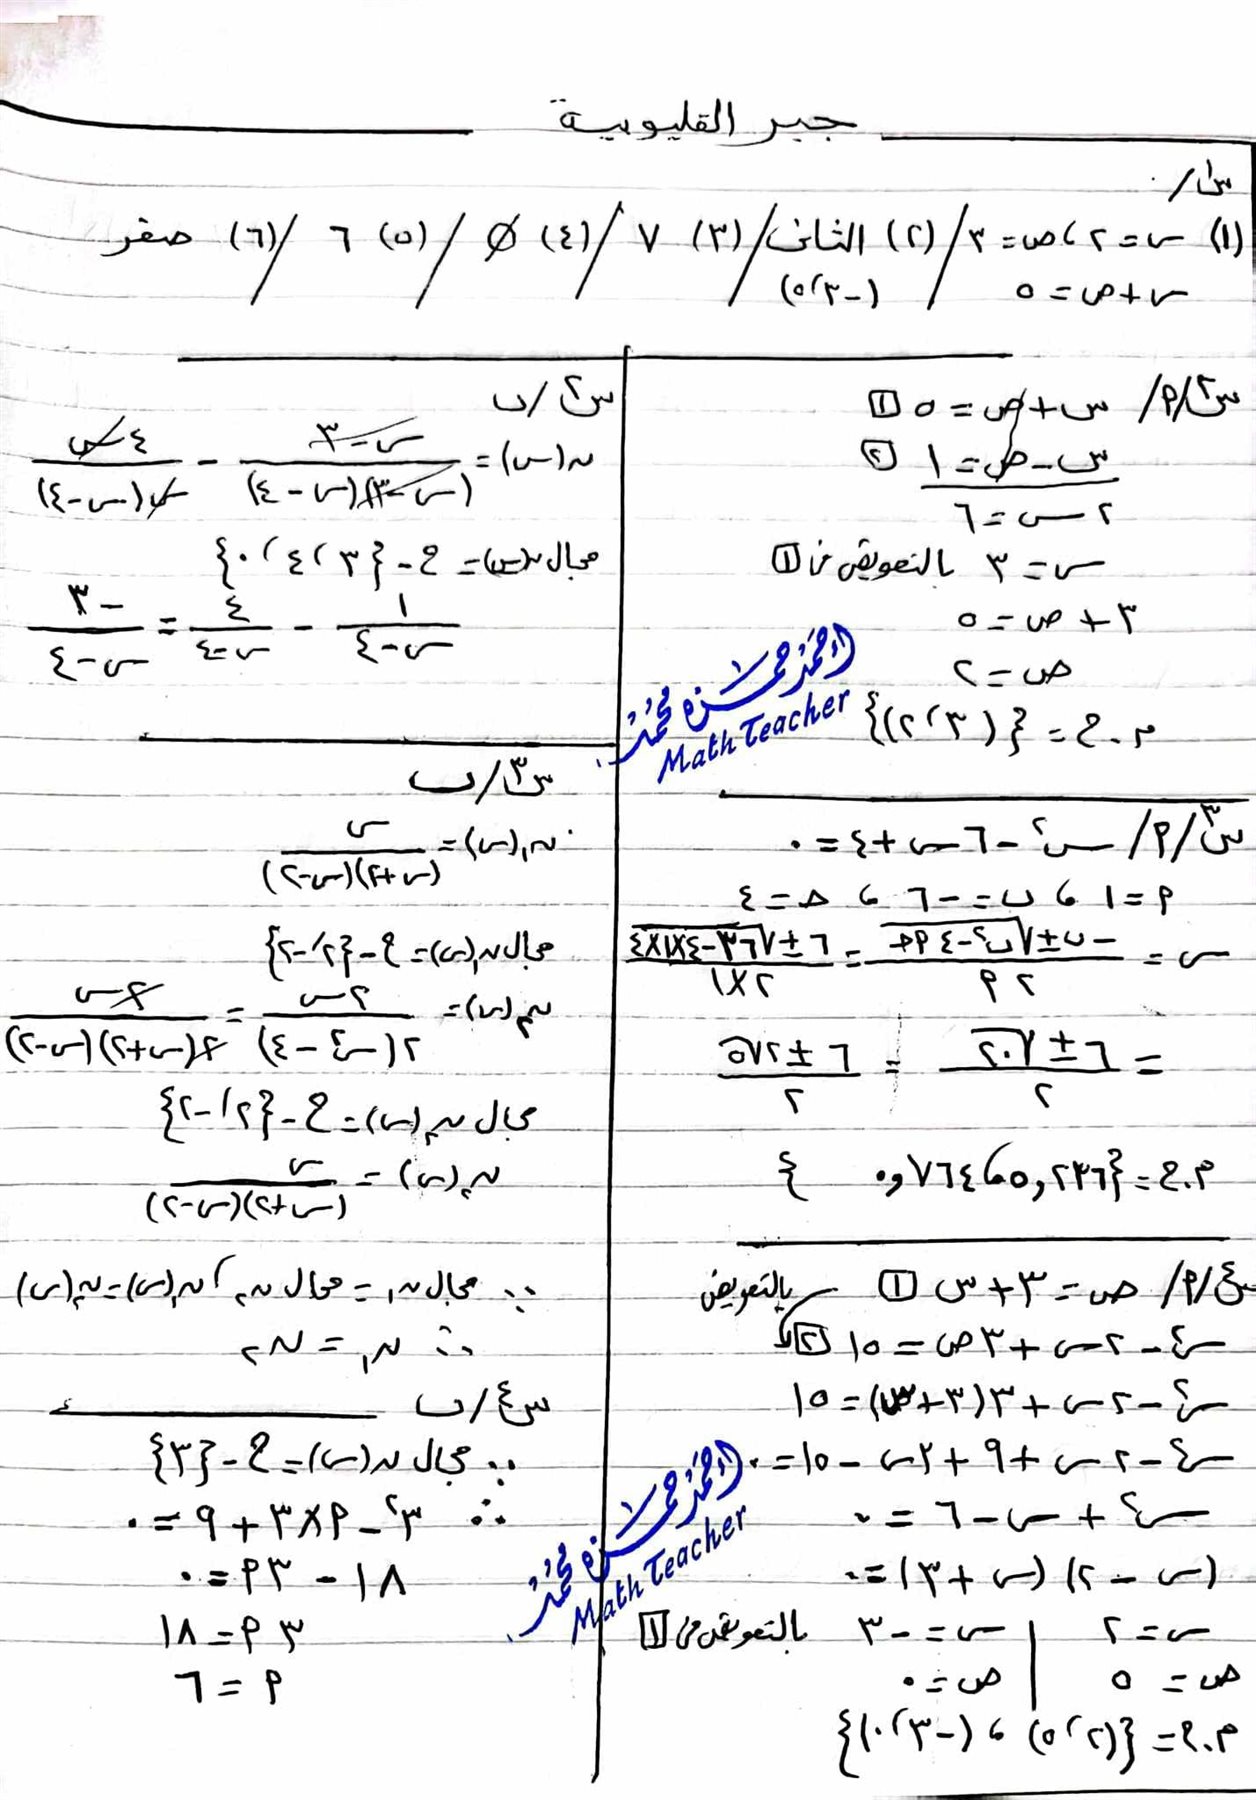 جبر القليوبية
س١/
(١) س = ٢ ، ص = ٣ / (٢) الثانى / (٣) ٧ / (٤) ∅ / (٥) ٦ / (٦) صفر
س + ص = ٥
(-٣ ، ٥)
س٢/أ/ س + ص = ٥ [١]
س - ص = ١ [٢]
٢س = ٦
س = ٣ بالتعويض فى [١]
٣ + ص = ٥
ص = ٢
م.ح = {(٣ ، ٢)}
س٢/ب
ن(س) = (س - ٣)/((س - ٣)(س - ٤)) - ٤س/(س(س - ٤))
مجال ن(س) = ح - {٣ ، ٤ ، ٠}
١/(س - ٤) - ٤/(س - ٤) = -٣/(س - ٤)
أحمد حمزة محمد
Math Teacher
س٣/أ/ س² - ٦س + ٤ = ٠
أ = ١ ، ب = -٦ ، ج = ٤
س = (-ب ± √(ب² - ٤أج))/(٢أ) = (٦ ± √(٣٦ - ٤×١×٤))/(٢×١)
= (٦ ± √٢٠)/٢ = (٦ ± ٢√٥)/٢
م.ح = {٥,٢٣٦ ، ٠,٧٦٤}
س٣/ب
ن١(س) = س/((س + ٢)(س - ٢))
مجال ن١(س) = ح - {٢ ، -٢}
ن٢(س) = ٢س/(٢(س² - ٤)) = ٢س/(٢(س + ٢)(س - ٢))
مجال ن٢(س) = ح - {٢ ، -٢}
ن٢(س) = س/((س + ٢)(س - ٢))
∵ مجال ن١ = مجال ن٢ ، ن١(س) = ن٢(س)
∴ ن١ = ن٢
س٤/أ/ ص = ٣ + س [١] بالتعويض
س² - ٢س + ٣ص = ١٥ [٢]
س² - ٢س + ٣(٣ + س) = ١٥
س² - ٢س + ٩ + ٣س - ١٥ = ٠
س² + س - ٦ = ٠
(س - ٢)(س + ٣) = ٠
س = ٢ | س = -٣ بالتعويض فى [١]
ص = ٥ | ص = ٠
م.ح = {(٢ ، ٥) ، (-٣ ، ٠)}
س٤/ب
∵ مجال ن(س) = ح - {٣}
∴ ٣² - أ×٣ + ٩ = ٠
١٨ - ٣أ = ٠
٣أ = ١٨
أ = ٦
أحمد حمزة محمد
Math Teacher